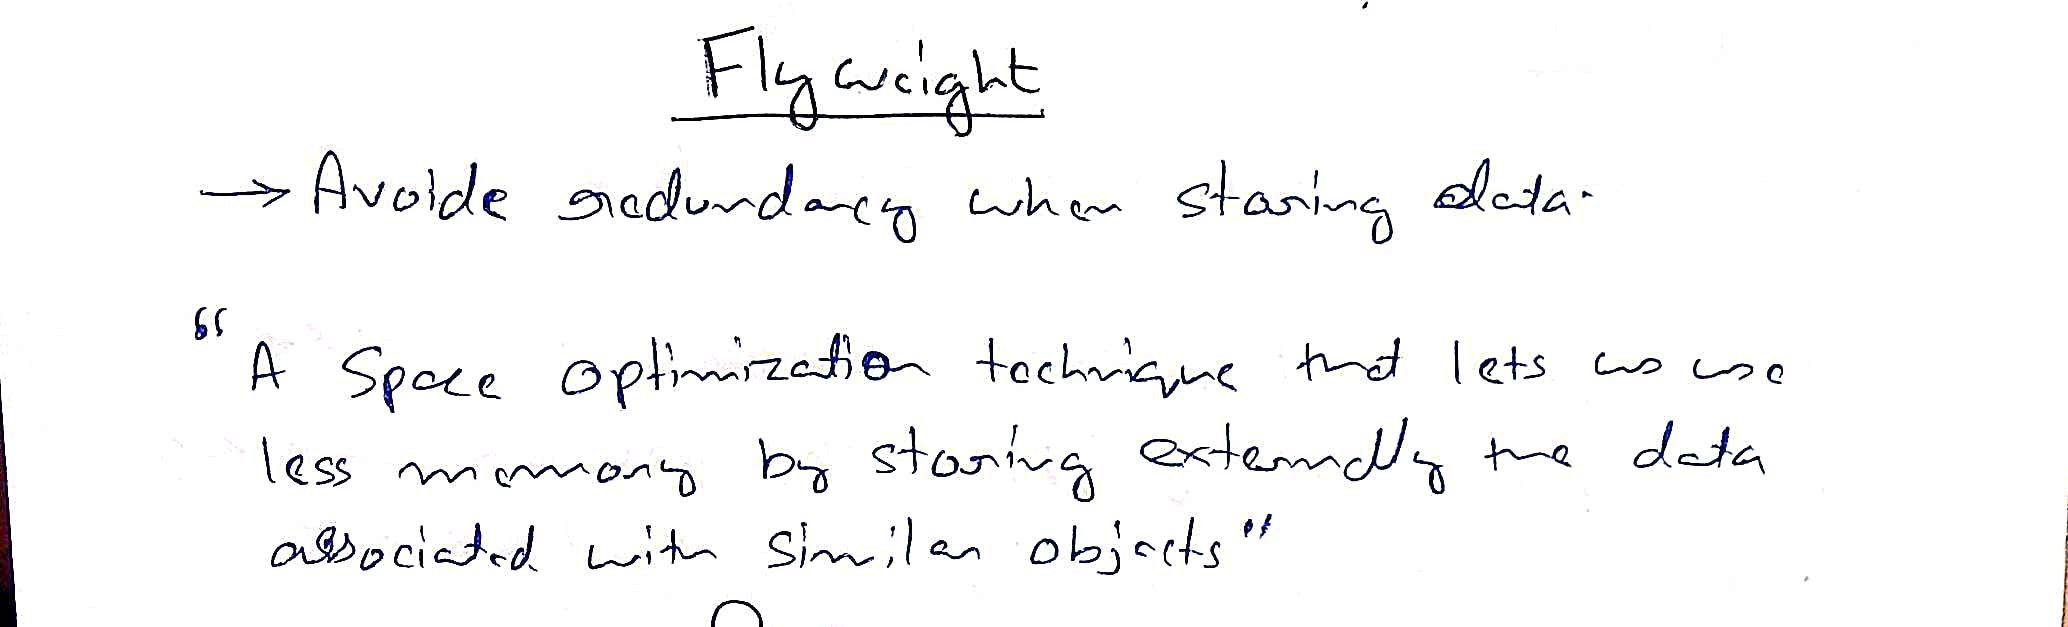 Flyweight
→ Avoide redundancy when storing data.
" A Space optimization technique that lets us use
less memory by storing externally the data
associated with similar objects"